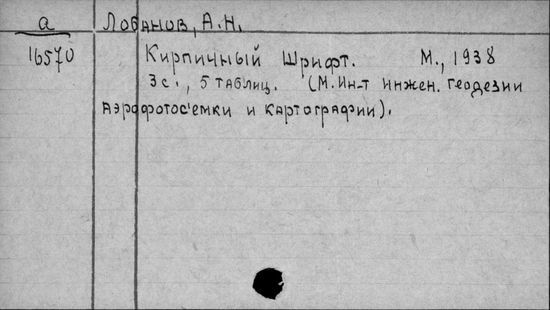 а Лобанов, А.Н.
16570 Кирпичный Шрифт. М., 1938
3с., 5 таблиц. (М. Ин-т инжен. геодезии
аэрофотос'емки и картографии).